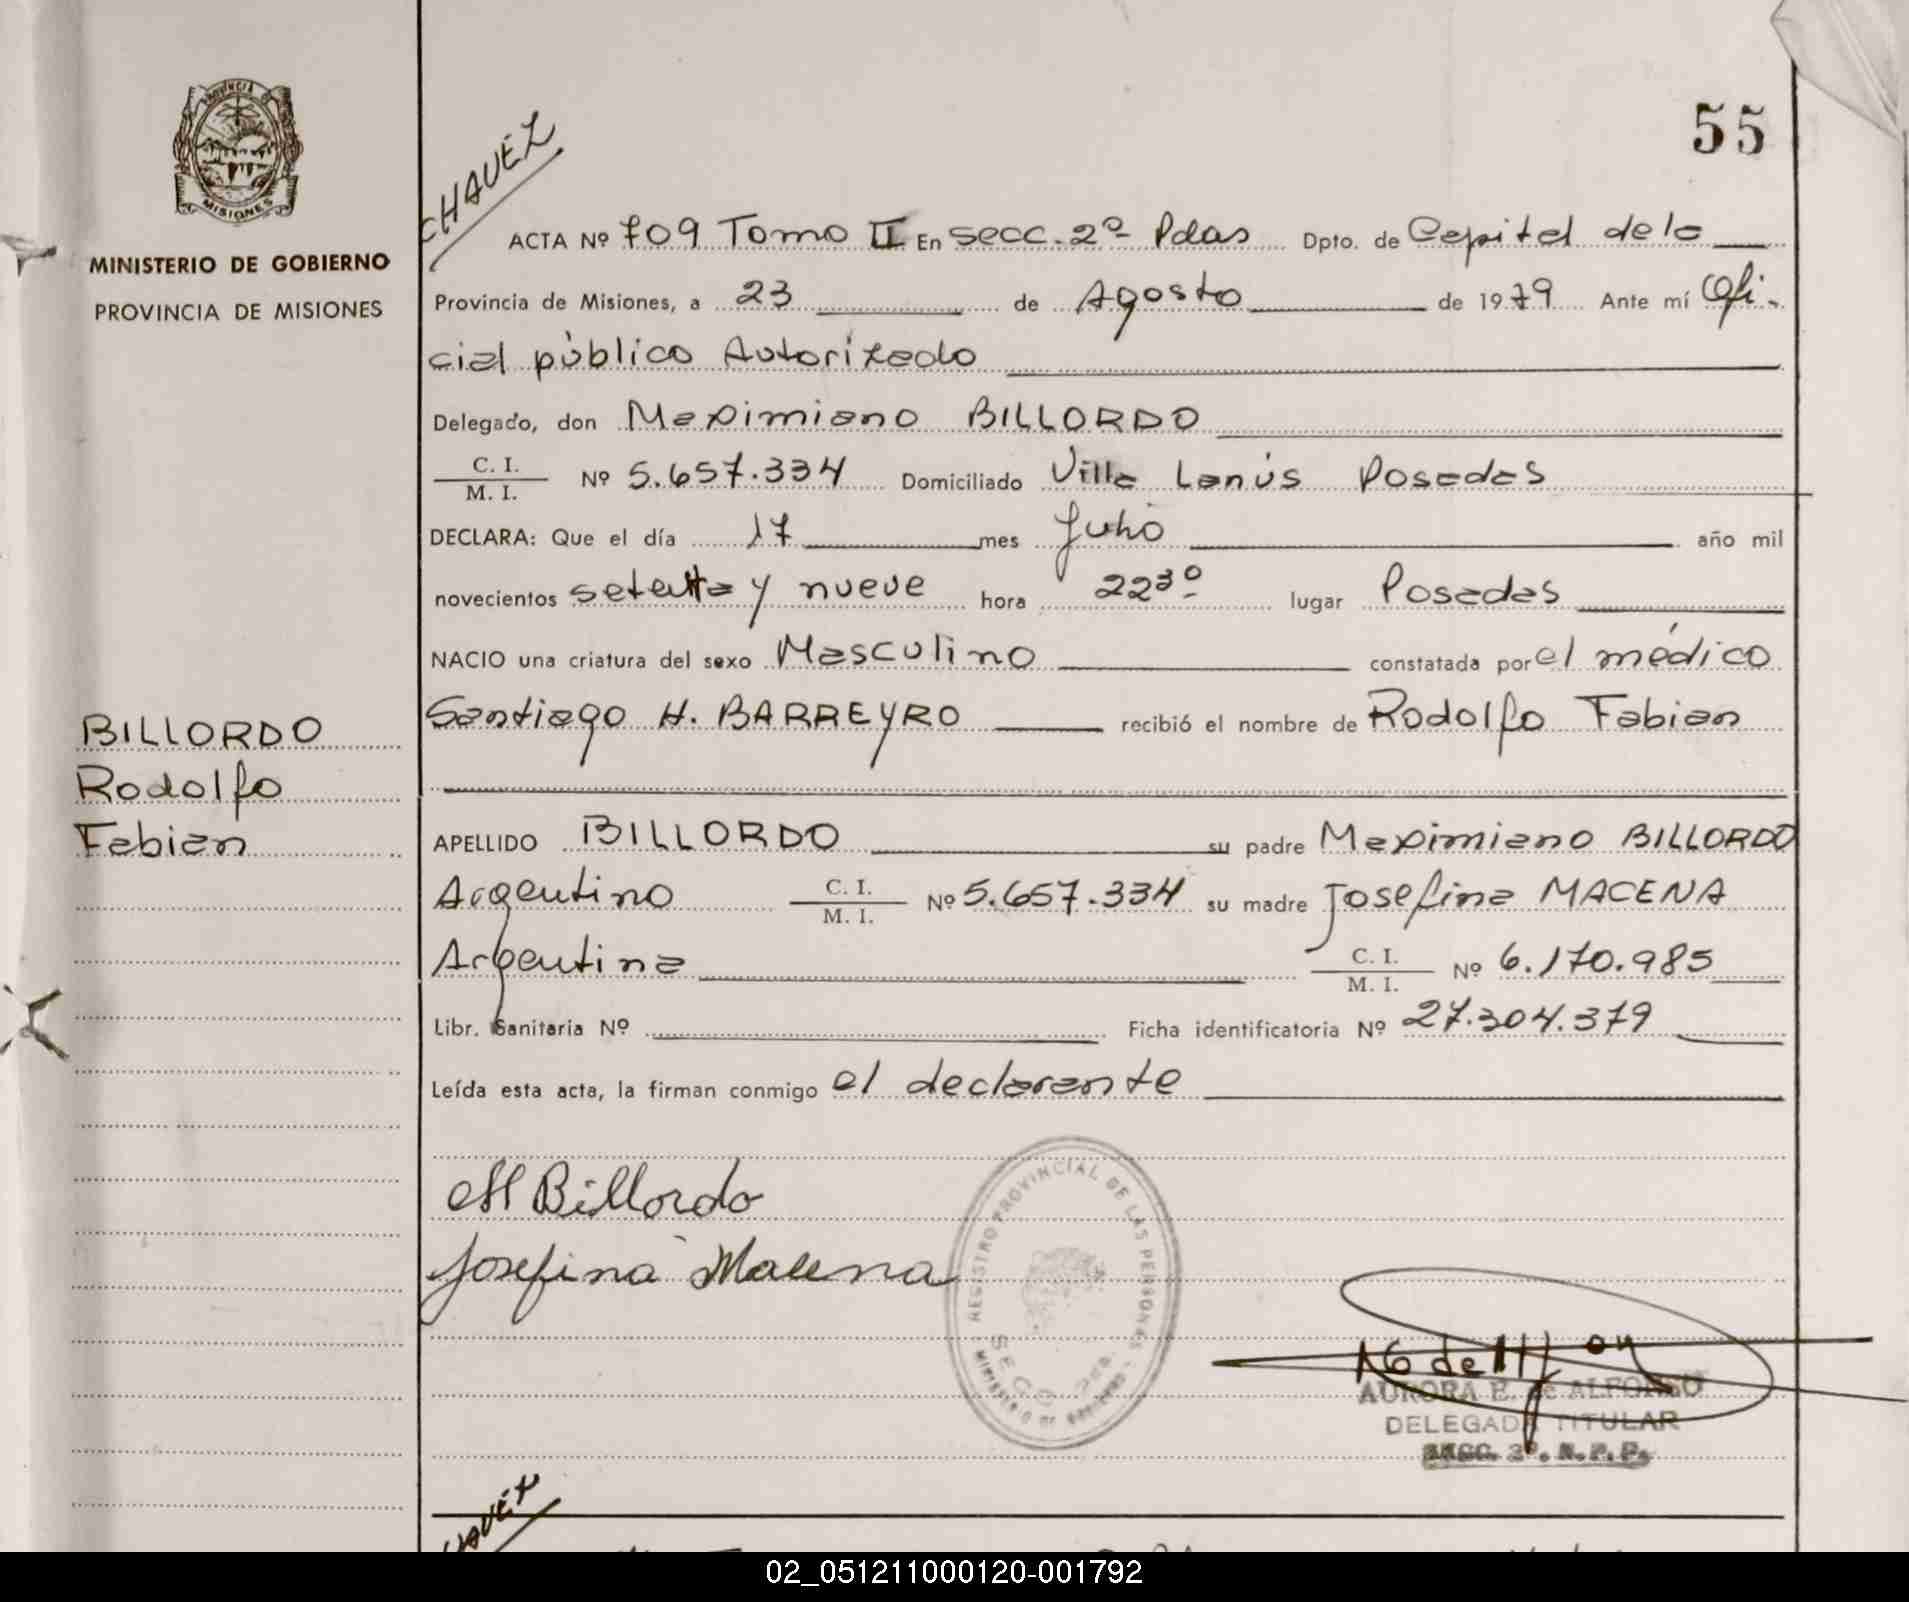 55
CHAVÉZ
PROVINCIA
MISIONES
MINISTERIO DE GOBIERNO
PROVINCIA DE MISIONES
ACTA Nº 709 Tomo II En secc. 2º Pdas Dpto. de Capital de la
Provincia de Misiones, a 23 de Agosto de 1979 Ante mí Ofi-
cial público Autorizado
Delegado, don Maximiano BILLORDO
C. I.
M. I. Nº 5.657.334 Domiciliado Villa Lanús Posadas
DECLARA: Que el día 17 mes Julio año mil
novecientos setenta y nueve hora 22³⁰ lugar Posadas
NACIO una criatura del sexo Masculino constatada por el médico
Santiago H. BARREYRO recibió el nombre de Rodolfo Fabian
BILLORDO
Rodolfo
Fabian
APELLIDO BILLORDO su padre Maximiano BILLORDO
Argentino C. I. M. I. Nº 5.657.334 su madre Josefina MACENA
Argentina C. I. M. I. Nº 6.170.985
Libr. Sanitaria Nº Ficha identificatoria Nº 27.304.379
Leída esta acta, la firman conmigo el declarante
M Billordo
Josefina Macena
REGISTRO PROVINCIAL DE LAS PERSONAS
MINISTERIO DE GOBIERNO
SECC
AURORA E. de ALFONSO
DELEGADA TITULAR
SECC. 2ª. R. P. P.
CHAVÉZ
02_051211000120-001792